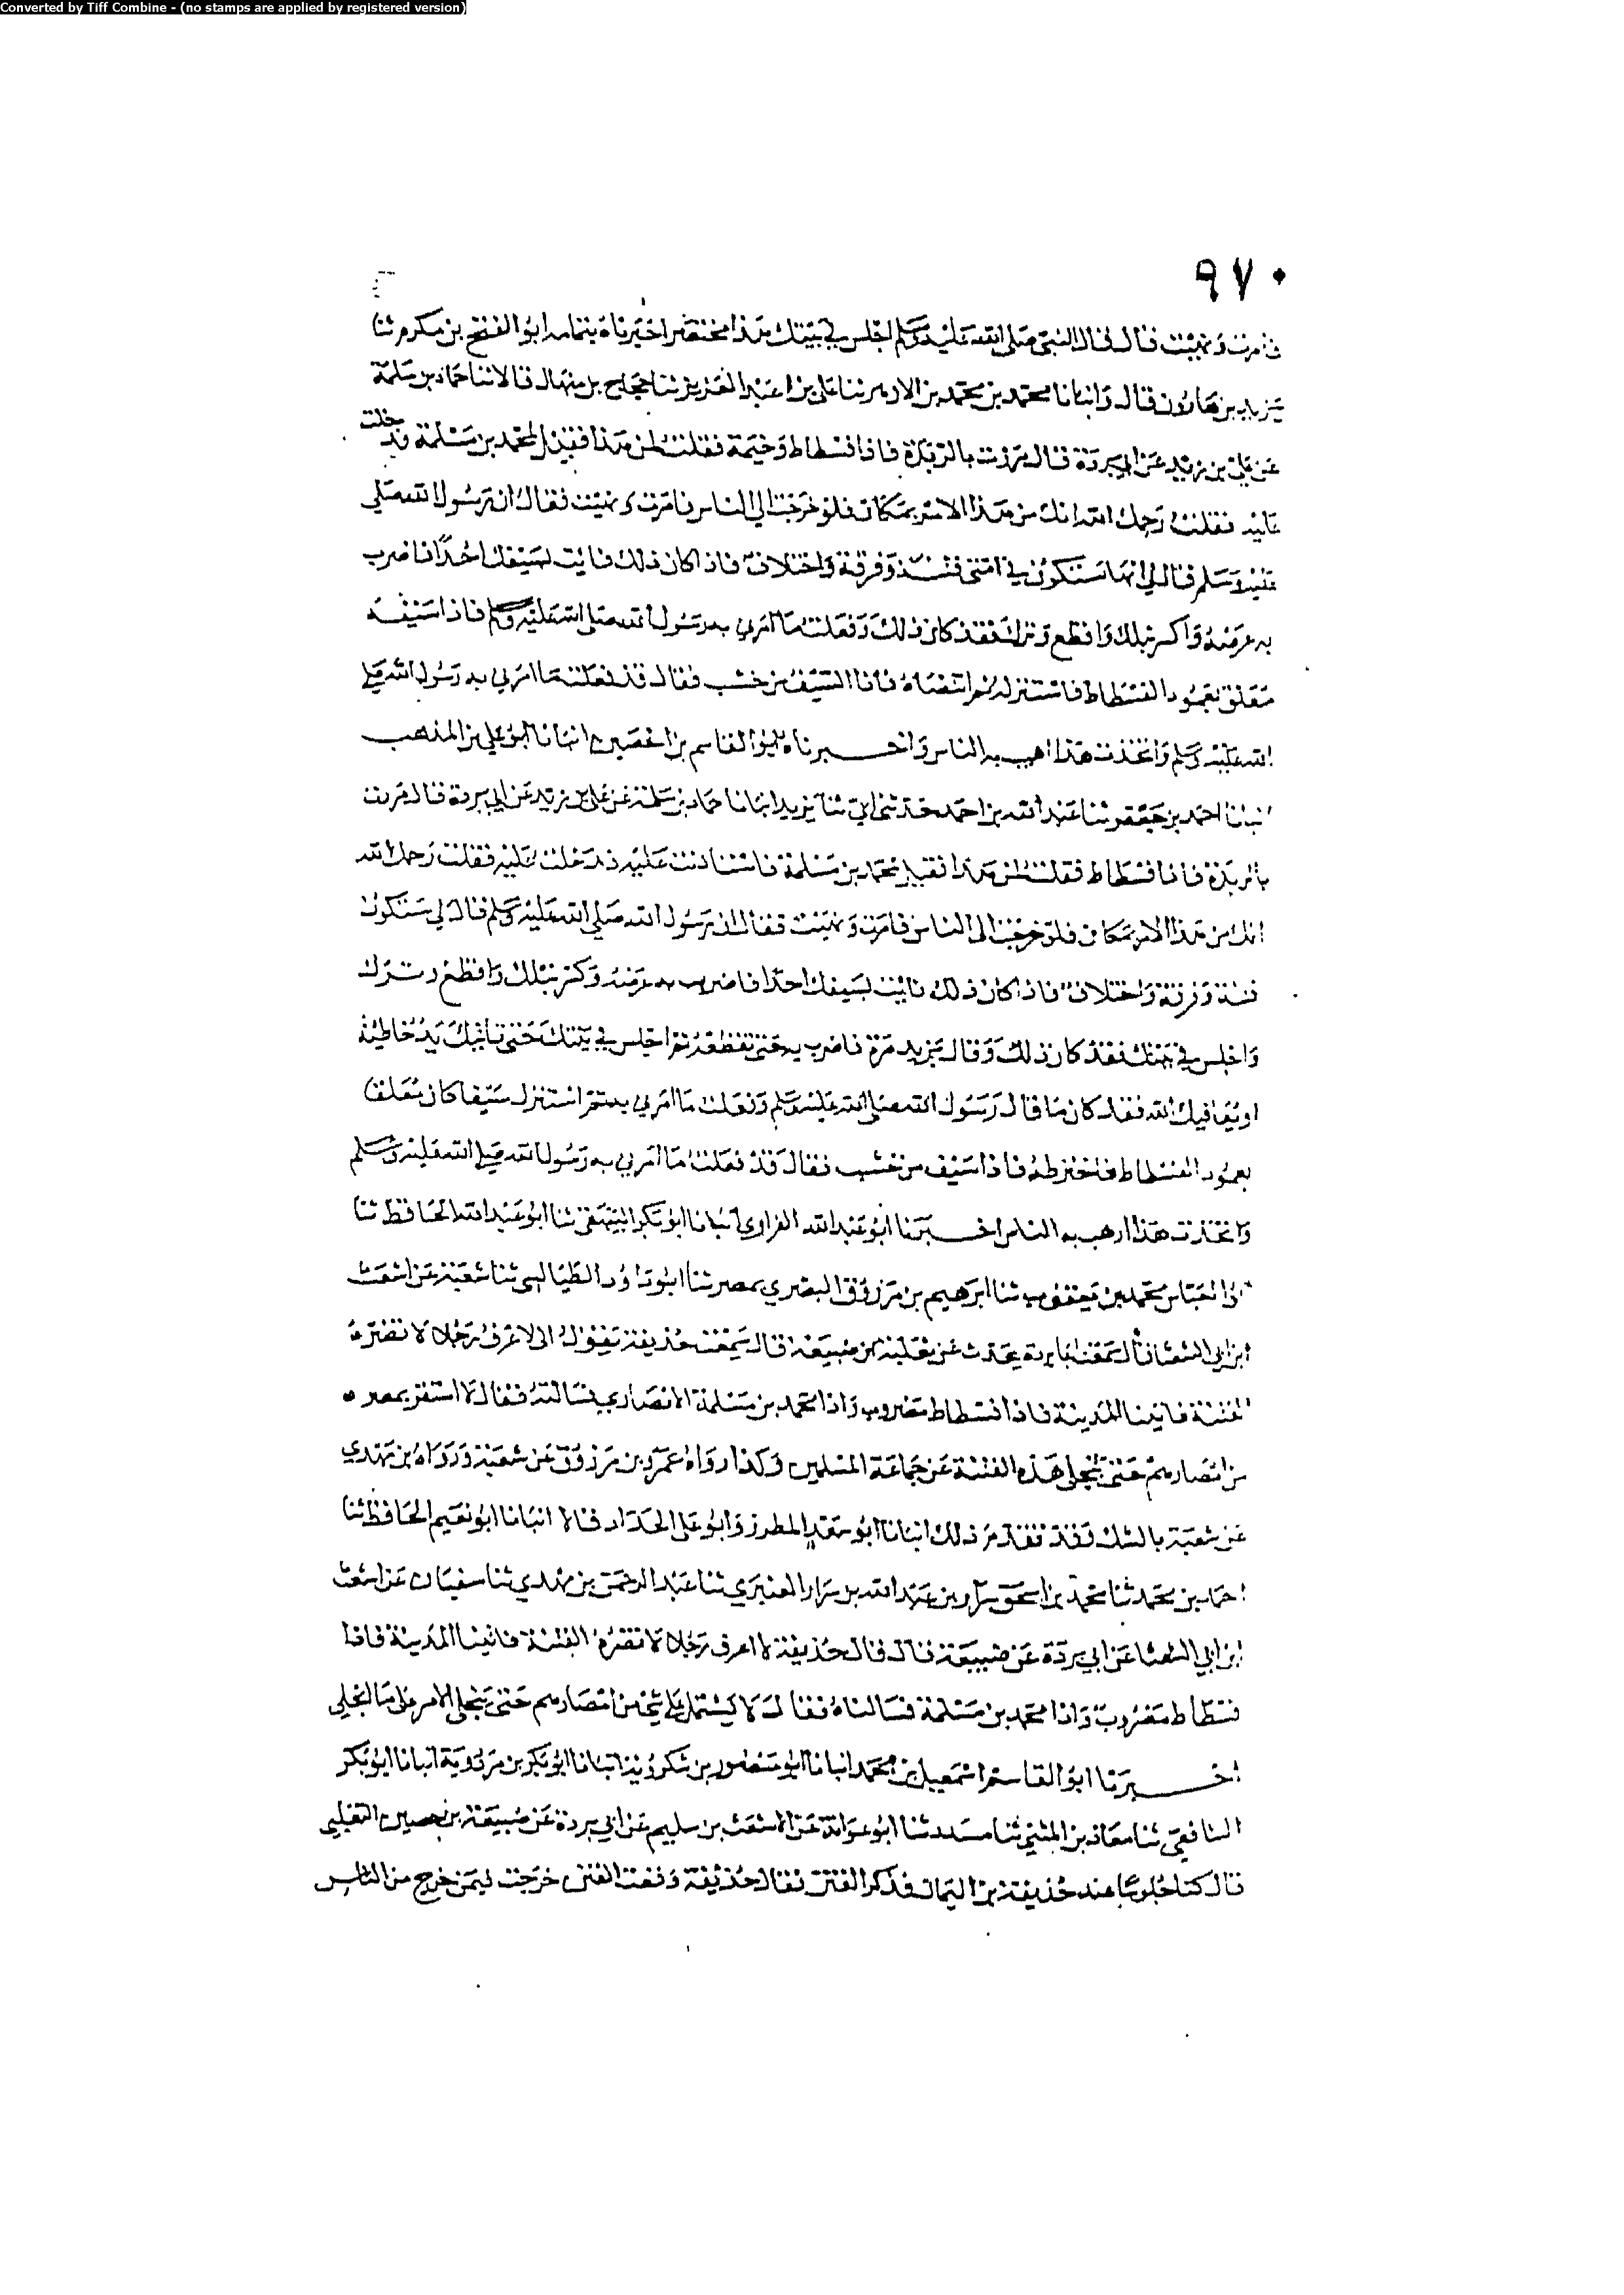 Converted by Tiff Combine - (no stamps are applied by registered version)
٩٧٠
فامرت ونهيت قال قال النبي صلى الله عليه وسلم اجلس في بيتك هذا مختصر اخبرناه بتمامه ابو الفتح بن مكرم ثنا
يزيد بن هارون قال وانبانا محمد بن محمد بن الازهر ثنا علي بن عبد العزيز ثنا حجاج بن منهال قالا ثنا حماد بن سلمة
عن علي بن زيد عن ابي بردة قال مررت بالربذة فاذا فسطاط وخيمة فقلت لمن هذا فقيل لمحمد بن مسلمة فدخلت
عليه فقلت رحمك الله انك من هذا الامر بمكان فلو خرجت الى الناس فامرت ونهيت فقال ان رسول الله صلى
عليه وسلم قال لي انها ستكون في امتي فتنة وفرقة واختلاف فاذا كان ذلك فايت بسيفك احدا فاضرب
به عرضه واكسر نبلك واقطع وترك فقد كان ذلك وفعلت ما امرني به رسول الله صلى الله عليه وسلم فاذا سيفه
معلق بعمود الفسطاط فاستنزله ثم انتضاه فاذا السيف من خشب فقال قد فعلت ما امرني به رسول الله صلى
الله عليه وسلم واتخذت هذا اهيب به الناس واخبرناه ابو القاسم بن الحصين انبانا ابو علي بن المذهب
انبانا احمد بن جعفر ثنا عبد الله بن احمد حدثني ابي ثنا يزيد انبانا حماد بن سلمة عن علي بن زيد عن ابي بردة قال مررت
بالربذة فاذا فسطاط فقلت لمن هذا فقيل محمد بن مسلمة فاستاذنت عليه فدخلت عليه فقلت رحمك الله
انك من هذا الامر بمكان فلو خرجت الى الناس فامرت ونهيت فقال ان رسول الله صلى الله عليه وسلم قال لي ستكون
فتنة وفرقة واختلاف فاذا كان ذلك فايت بسيفك احدا فاضرب به عرضه وكسر نبلك واقطع وترك
واجلس في بيتك فقد كان ذلك وقال يزيد مرة فاضرب به حتى تقطعه ثم اجلس في بيتك حتى تاتيك يد خاطئة
او يعافيك الله فقد كان ما قال رسول الله صلى الله عليه وسلم وفعلت ما امرني به ثم استنزل سيفا كان معلقا
بعمود الفسطاط فاخترطه فاذا سيف من خشب فقال قد فعلت ما امرني به رسول الله صلى الله عليه وسلم
واتخذت هذا ارهب به الناس اخبرنا ابو عبد الله الفراوي انبانا ابو بكر البيهقي ثنا ابو عبد الله الحافظ ثنا
ابو العباس محمد بن يعقوب ثنا ابرهيم بن مرزوق البصري بمصر ثنا ابو داود الطيالسي ثنا شعبة عن اشعث
ابن ابي الشعثا قال سمعت ابا بردة يحدث عن ثعلبة بن ضبيعة قال سمعت حذيفة يقول اني لاعرف رجلا لا تضره
الفتنة فاتينا المدينة فاذا فسطاط مضروب واذا محمد بن مسلمة الانصاري فسالته فقال لا استقر بمصر
من امصارهم حتى تنجلي هذه الفتنة عن جماعة المسلمين وكذا رواه عمرو بن مرزوق عن شعبة ورواه بن مهدي
عن شعبة بالشك وقد تقدم ذلك انبانا ابو سعد المطرز وابو علي الحداد قالا انبانا ابو نعيم الحافظ ثنا
احمد بن محمد ثنا محمد بن اسحق سوار بن عبد الله بن سوار العنبري ثنا عبد الرحمن بن مهدي ثنا سفيان عن اشعث
ابن ابي الشعثا عن ابي بردة عن ضبيعة قال قال حذيفة لاعرف رجلا لا تضره الفتنة فاتينا المدينة فاذا
فسطاط مضروب واذا محمد بن مسلمة فسالناه فقال لا يشتمل علي شي من امصارهم حتى ينجلي الامر على ما انجلى
اخبرنا ابو القاسم اسمعيل بن محمد انبانا ابو منصور بن شكرويه انبانا ابو بكر بن مردوية انبانا ابو بكر
الشافعي ثنا معاذ بن المثنى ثنا مسدد ثنا ابو عوانة عن الاشعث بن سليم عن ابي بردة عن ضبيعة بن حصين التغلبي
قال كنا جلوسا عند حذيفة بن اليمان فذكر الفتن فقال حذيفة وقعت الفتن خرجت فيمن خرج من الناس